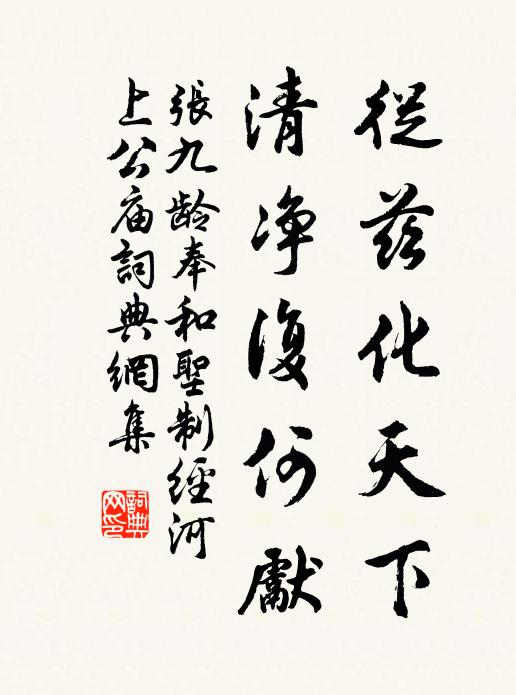 從茲化天下
清净復何獻
張九龄奉和聖制經河
上公庙詞典網集
詞典网印